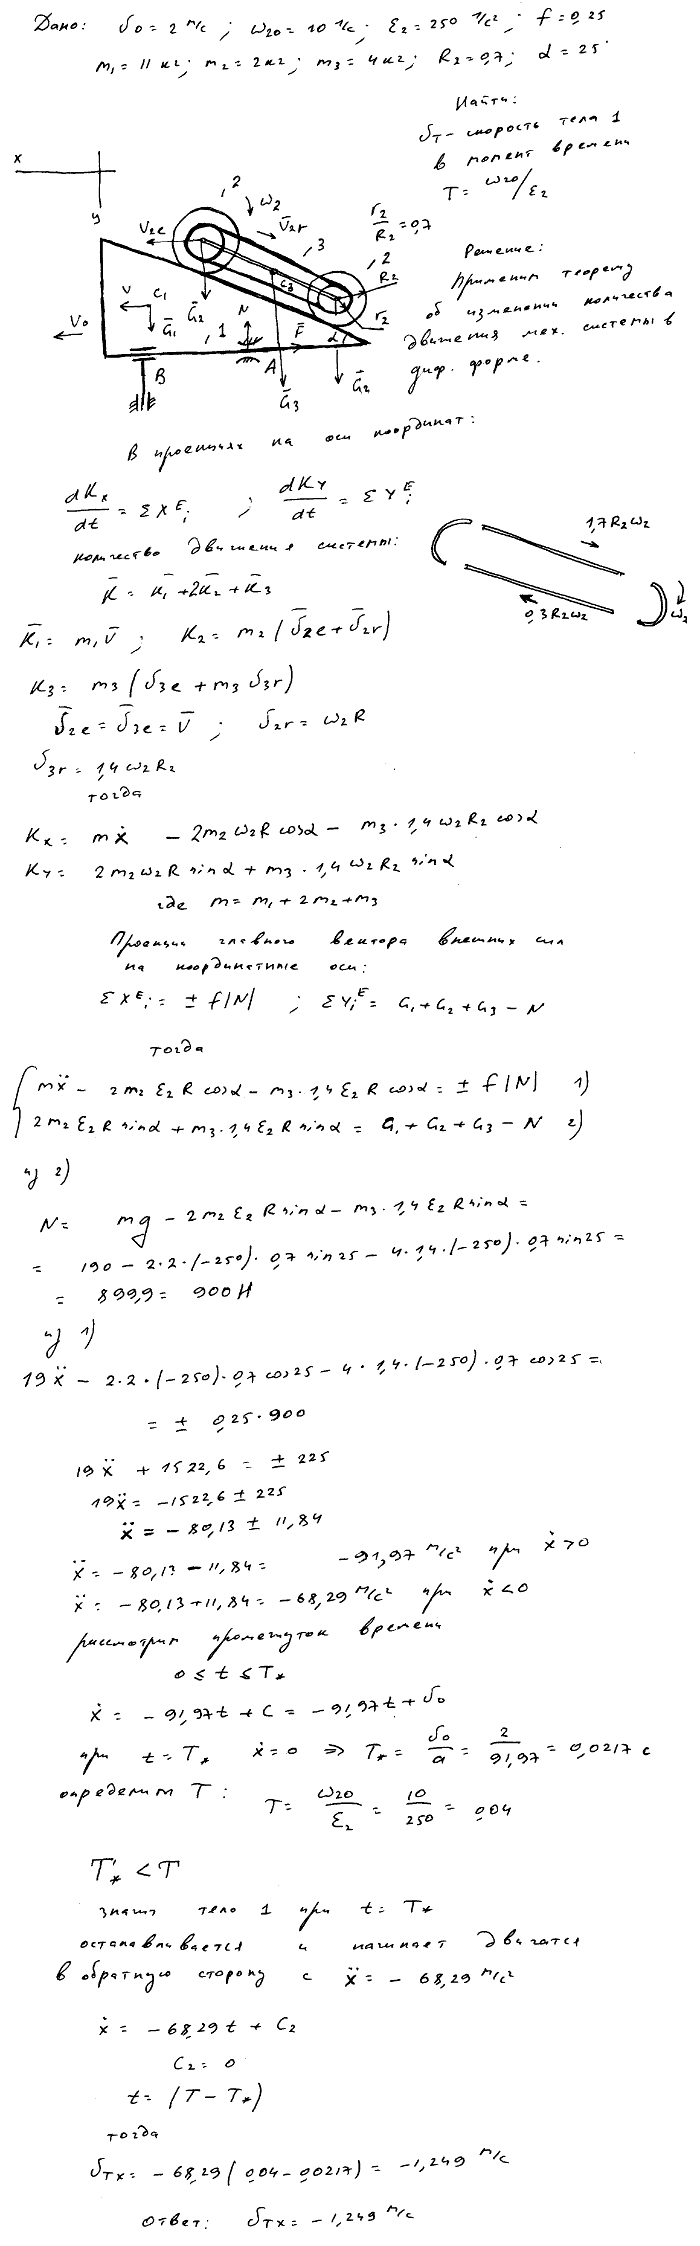 Дано: v₀ = 2 м/с ; ω₂₀ = 10 1/с ; ε₂ = 250 1/с² ; f = 0,25
m₁ = 11 кг ; m₂ = 2 кг ; m₃ = 4 кг ; R₂ = 0,7 ; α = 25°
Найти:
v_T – скорость тела 1
в момент времени
T = ω₂₀/ε₂
x
y
2
ω₂
V̄₂e
V̄₂r
3
r₂/R₂ = 0,7
2
R₂
r₂
C₃
V
C₁
Ḡ₁
Ḡ₂
1
N
F̄
α
V₀
B
A
Ḡ₃
Ḡ₂
Решение:
Применим теорему
об изменении количества
движения мех. системы в
диф. форме.
В проекциях на оси координат:
dKx/dt = ΣXᴱᵢ ; dKy/dt = ΣYᴱᵢ
количество движения системы:
K̄ = K̄₁ + 2K̄₂ + K̄₃
1,7R₂ω₂
0,3R₂ω₂
ω₂
K̄₁ = m₁V̄ ; K₂ = m₂(v̄₂e + v̄₂r)
K₃ = m₃(v₃e + m₃v₃r)
v̄₂e = v̄₃e = V̄ ; v₂r = ω₂R
v₃r = 1,4ω₂R₂
тогда
Kx = mẋ – 2m₂ω₂R cosα – m₃·1,4ω₂R₂ cosα
Ky = 2m₂ω₂R sinα + m₃·1,4ω₂R₂ sinα
где m = m₁ + 2m₂ + m₃
Проекции главного вектора внешних сил
на координатные оси:
ΣXᴱᵢ = ± f|N| ; ΣYᵢᴱ = G₁ + G₂ + G₃ – N
тогда
mẍ – 2m₂ε₂R cosα – m₃·1,4ε₂R cosα = ± f|N| 1)
2m₂ε₂R sinα + m₃·1,4ε₂R sinα = G₁ + G₂ + G₃ – N 2)
из 2)
N = mg – 2m₂ε₂R sinα – m₃·1,4ε₂R sinα =
= 190 – 2·2·(–250)·0,7 sin25 – 4·1,4·(–250)·0,7 sin25 =
= 899,9 = 900 Н
из 1)
19ẍ – 2·2·(–250)·0,7 cos25 – 4·1,4·(–250)·0,7 cos25 =
= ± 0,25·900
19ẍ + 1522,6 = ± 225
19ẍ = –1522,6 ± 225
ẍ = –80,13 ± 11,84
ẍ = –80,13 – 11,84 = –91,97 м/с² при ẋ>0
ẍ = –80,13+11,84 = –68,29 м/с² при ẋ<0
рассмотрим промежуток времени
0 ≤ t ≤ T*
ẋ = –91,97t + C = –91,97t + v₀
при t = T* ẋ = 0 ⇒ T* = v₀/a = 2/91,97 = 0,0217 с
определим T : T = ω₂₀/ε₂ = 10/250 = 0,04
T* < T
значит тело 1 при t = T*
останавливается и начинает двигатся
в обратную сторону с ẍ = –68,29 м/с²
ẋ = –68,29t + C₂
C₂ = 0
t = (T – T*)
тогда
v_Tx = –68,29(0,04–0,0217) = –1,249 м/с
Ответ: v_Tx = –1,249 м/с